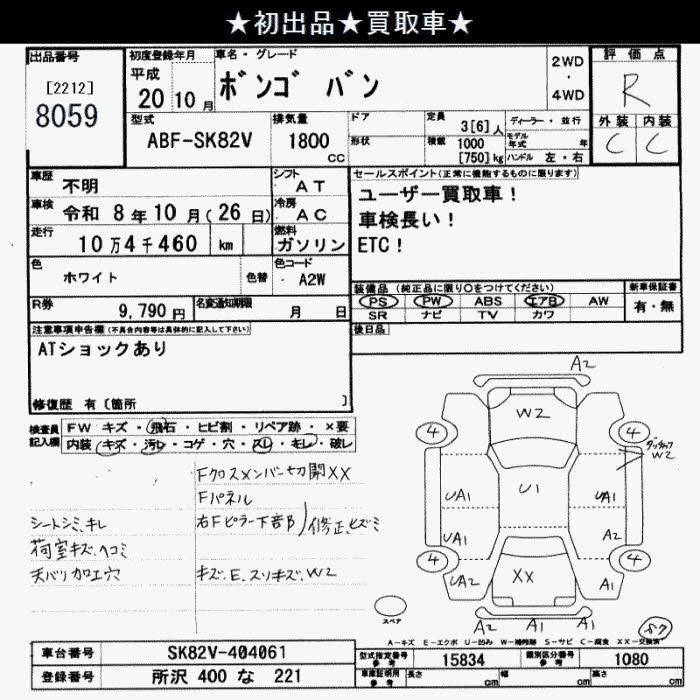 ★初出品★買取車★
出品番号
[2212]
8059
初度登録年月
平成
20 10 月
車名・グレード
ボンゴ バン
2WD
・
4WD
評価点
R
外装 内装
C C
型式
ABF-SK82V
排気量
1800
cc
ドア
形状
定員
3[6] 人
積載
1000
[750] kg
ディーラー・並行
モデル
年式 年
ハンドル 左・右
車歴
不明
シフト
AT
車検
令和 8 年 10 月 (26 日)
冷房
AC
走行
10 万 4 千 460 km
燃料
ガソリン
色
ホワイト
色替
色コード
A2W
R券
9,790 円
名変通知期限
月 日
セールスポイント(正常に機能するものに限ります)
ユーザー買取車!
車検長い!
ETC!
装備品 (純正品に限り○をつけてください)
PS PW ABS エアB AW
SR ナビ TV カワ
新車保証書
有・無
後日品
注意事項申告欄(不具合内容等は具体的に記入して下さい)
ATショックあり
修復歴 有〔箇所 〕
検査員
記入欄
FW キズ・飛石・ヒビ割・リペア跡・×要
内装・キズ・汚レ・コゲ・穴・スレ・キレ・破レ
Fクロスメンバー切開XX
Fパネル
右Fピラー下部 修正、ヒズミ
シートシミ、キレ
荷室キズ、ヘコミ
天バリ加工穴
キズ、E、スリキズ、W2
A2
W2
4 4
W2
UA1 U1 UA1
UA1 A2
4 4
UA2 XX A1
A2 A1 A1
スペア
A-キズ E-エクボ U-凹み W-補修跡 S-サビ C-腐食 XX-交換済
車台番号
SK82V-404061
登録番号
所沢 400 な 221
型式指定番号
参考
15834
類別区分番号
参考
1080
車庫証明用
参考
長さ cm
幅 cm
高さ cm